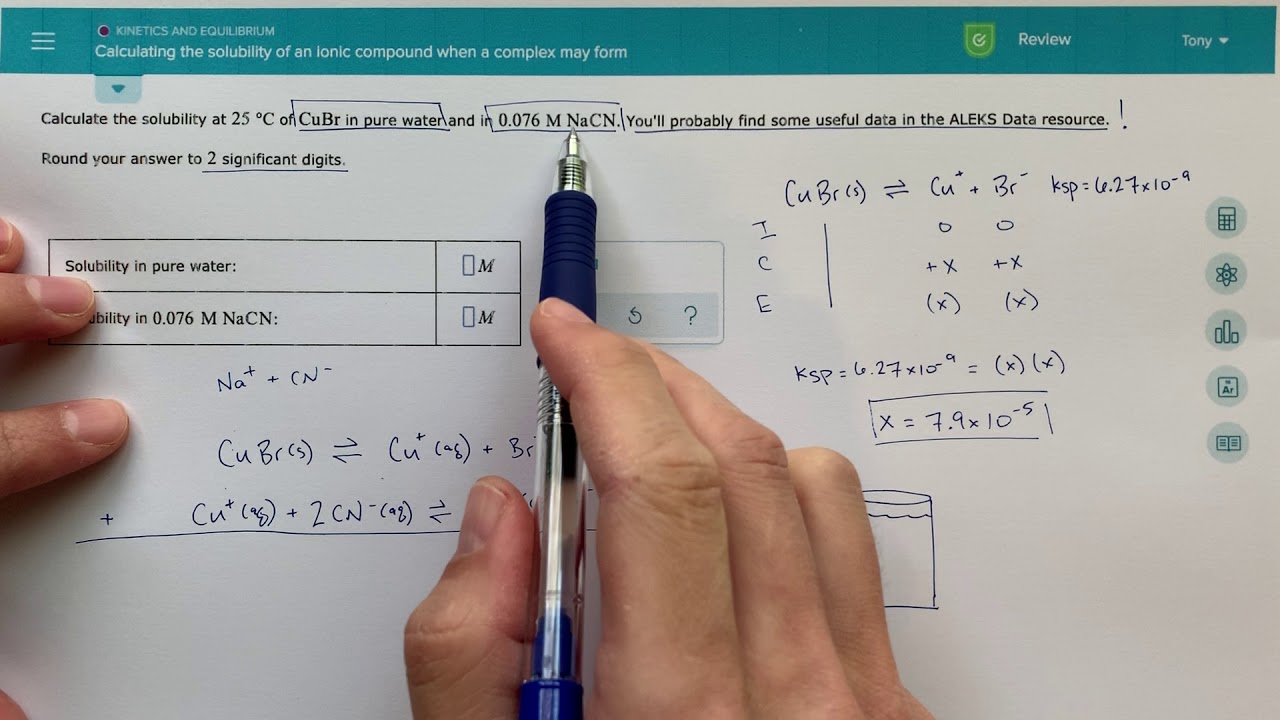 KINETICS AND EQUILIBRIUM
Calculating the solubility of an ionic compound when a complex may form
Review
Tony
Calculate the solubility at 25 °C of CuBr in pure water and in 0.076 M NaCN. You'll probably find some useful data in the ALEKS Data resource. !
Round your answer to 2 significant digits.
CuBr(s) ⇌ Cu⁺ + Br⁻ Ksp = 6.27x10⁻⁹
I 0 0
C +x +x
E (x) (x)
Solubility in pure water: M
in 0.076 M NaCN: M
?
Ksp = 6.27x10⁻⁹ = (x)(x)
x = 7.9x10⁻⁵
Na⁺ + CN⁻
CuBr(s) ⇌ Cu⁺(aq) + Br
+ Cu⁺(aq) + 2CN⁻(aq) ⇌
Ar